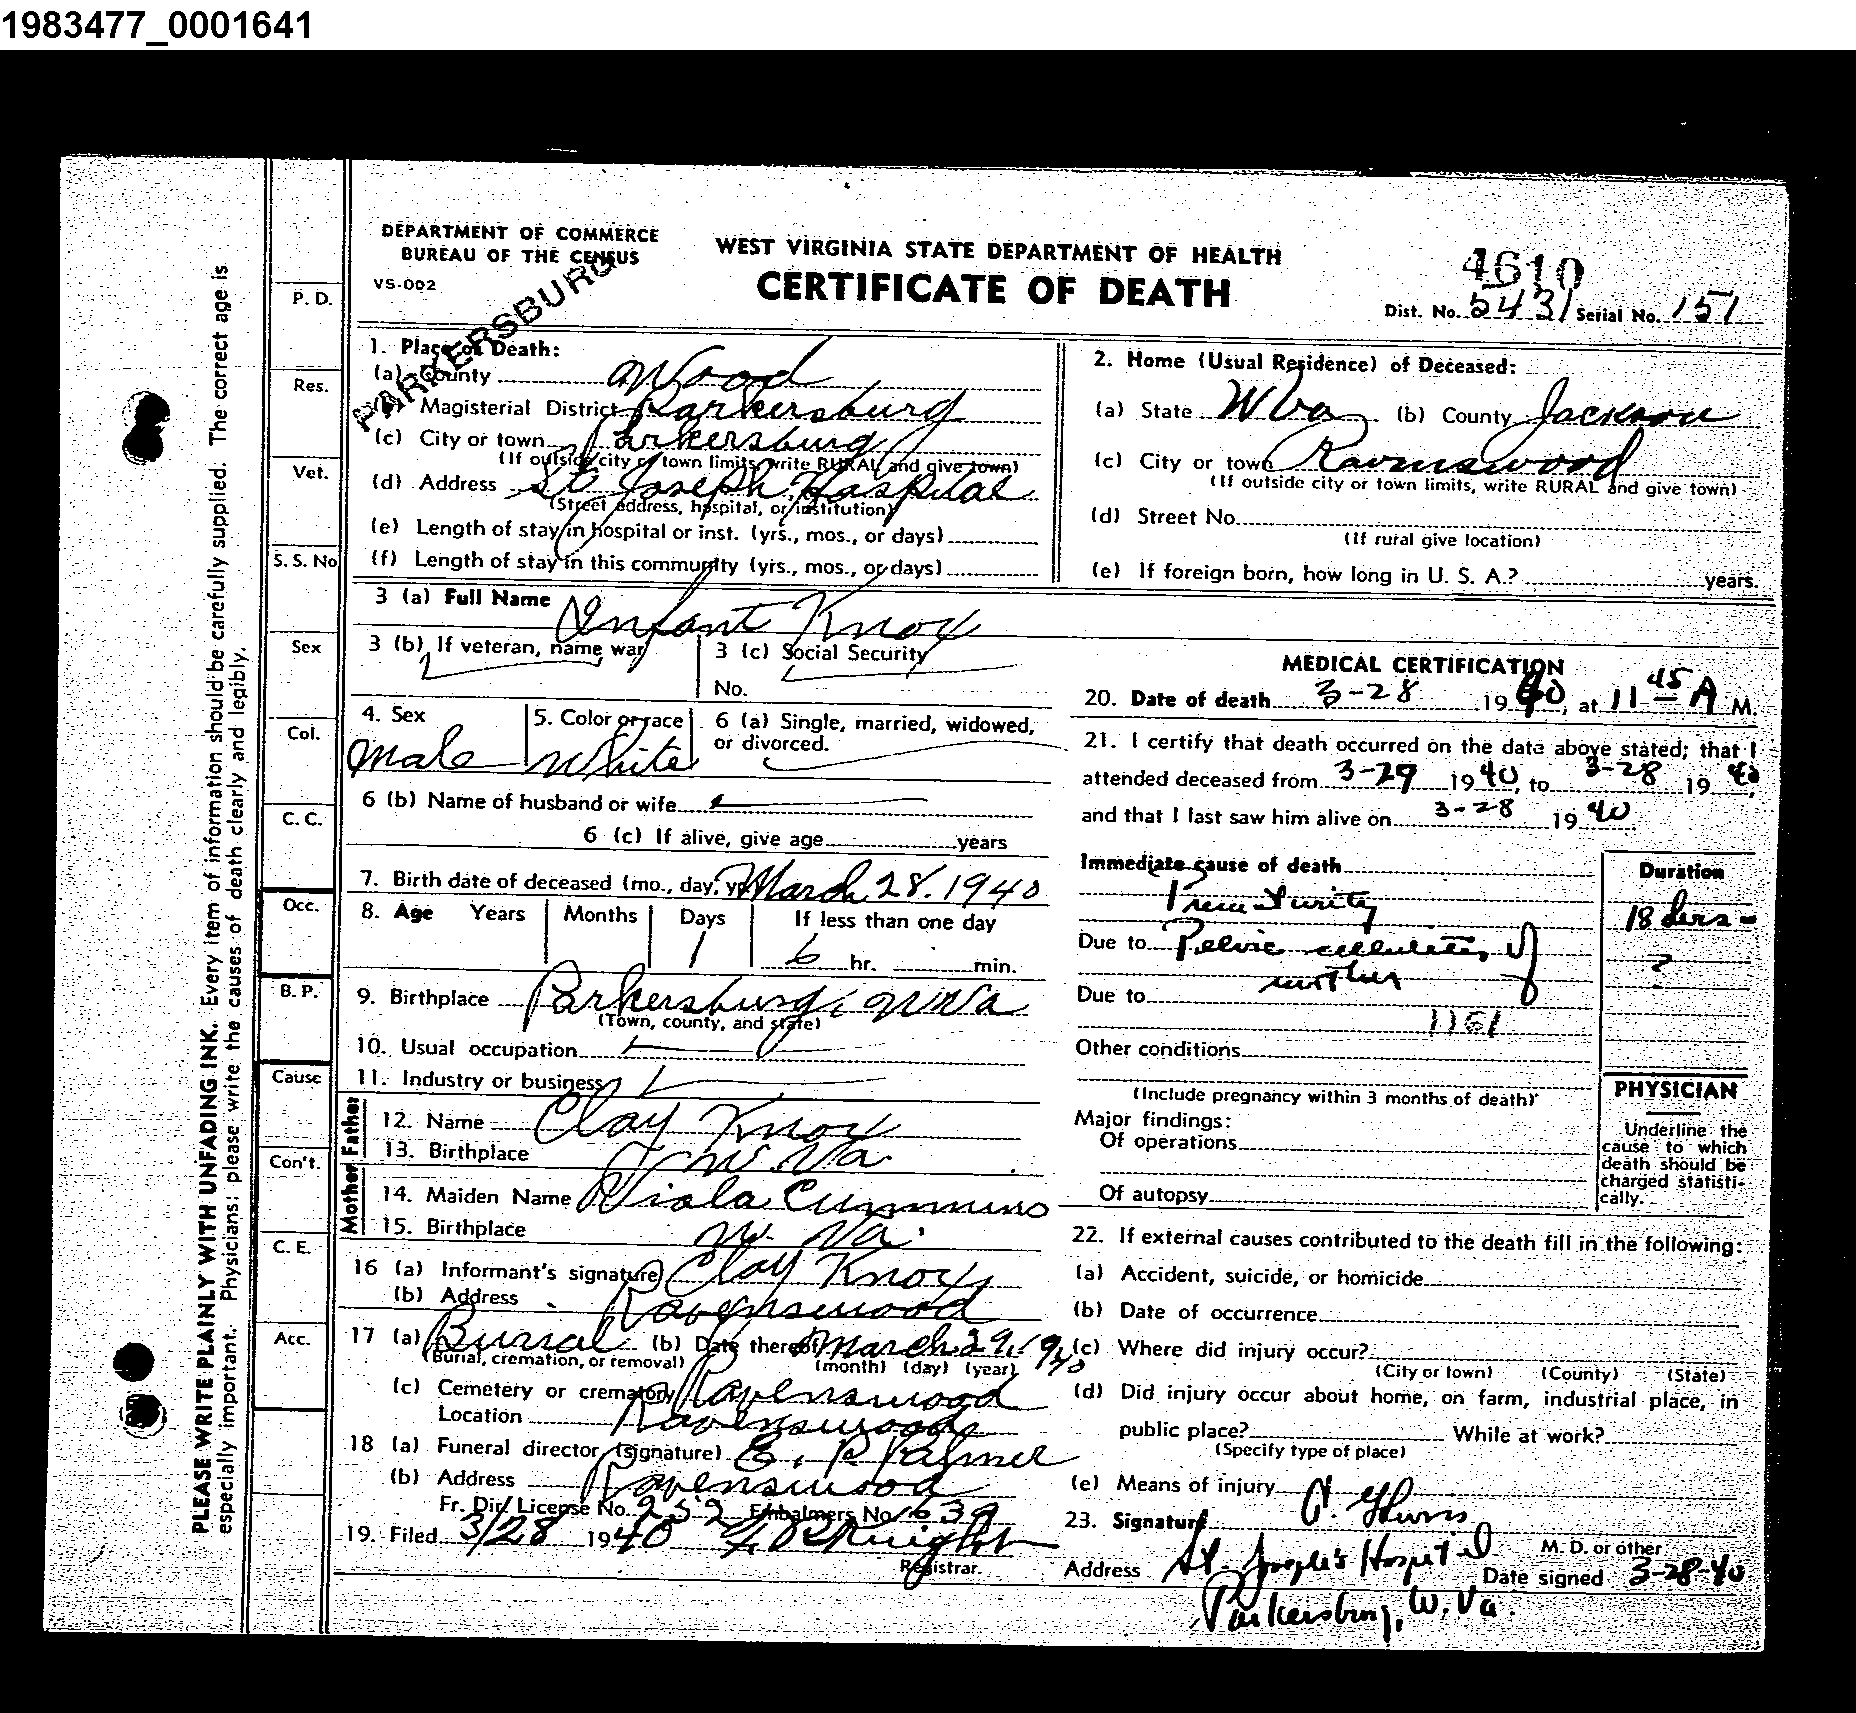 1983477_0001641
DEPARTMENT OF COMMERCE
BUREAU OF THE CENSUS
VS-002
PARKERSBURG
WEST VIRGINIA STATE DEPARTMENT OF HEALTH
CERTIFICATE OF DEATH
4610
Dist. No. 5431 Serial No. 151
1. Place of Death:
(a) County Wood
(b) Magisterial District Parkersburg
(c) City or town Parkersburg
(If outside city or town limits, write RURAL and give town)
(d) Address St Joseph Hospital
(Street address, hospital, or institution)
(e) Length of stay in hospital or inst. (yrs., mos., or days)
(f) Length of stay in this community (yrs., mos., or days)
2. Home (Usual Residence) of Deceased:
(a) State W Va (b) County Jackson
(c) City or town Ravenswood
(If outside city or town limits, write RURAL and give town)
(d) Street No.
(If rural give location)
(e) If foreign born, how long in U. S. A.? years.
3 (a) Full Name Infant Knox
3 (b) If veteran, name war
3 (c) Social Security
No.
4. Sex
Male
5. Color or race
White
6 (a) Single, married, widowed,
or divorced.
6 (b) Name of husband or wife
6 (c) If alive, give age years
7. Birth date of deceased (mo., day, yr. March 28. 1940
8. Age Years Months Days If less than one day
1 6 hr. min.
9. Birthplace Parkersburg, W Va
(Town, county, and state)
10. Usual occupation
11. Industry or business
Father
12. Name Clay Knox
13. Birthplace W. Va
Mother
14. Maiden Name Viola Cummins
15. Birthplace W. Va.
16 (a) Informant's signature Clay Knox
(b) Address Ravenswood
17 (a) Burial (b) Date thereof March 29, 1940
(Burial, cremation, or removal) (month) (day) (year)
(c) Cemetery or crematory Ravenswood
Location Ravenswood
18 (a) Funeral director (signature) E. P. Palmer
(b) Address Ravenswood
Fr. Dir. License No. 252 Embalmers No. 1639
19. Filed 3/28 1940 Knight
Registrar.
MEDICAL CERTIFICATION
20. Date of death 3-28 1940, at 11 45 A M.
21. I certify that death occurred on the date above stated; that I
attended deceased from 3-27 1940, to 3-28 1940,
and that I last saw him alive on 3-28 1940
Immediate cause of death
Prematurity
Due to Pelvic cellulitis of
mother
Due to
1161
Other conditions
(Include pregnancy within 3 months of death)
Major findings:
Of operations
Of autopsy
Duration
18 hrs -
?
PHYSICIAN
Underline the
cause to which
death should be
charged statisti-
cally.
22. If external causes contributed to the death fill in the following:
(a) Accident, suicide, or homicide
(b) Date of occurrence
(c) Where did injury occur?
(City or town) (County) (State)
(d) Did injury occur about home, on farm, industrial place, in
public place? While at work?
(Specify type of place)
(e) Means of injury
23. Signature
M. D. or other
Address St. Joseph's Hospital Date signed 3-28-40
Parkersburg, W. Va.
P. D.
Res.
Vet.
S. S. No
Sex
Col.
C. C.
Occ.
B. P.
Cause
Con't.
C. E.
Acc.
PLEASE WRITE PLAINLY WITH UNFADING INK. Every item of information should be carefully supplied. The correct age is
especially important. Physicians: please write the causes of death clearly and legibly.